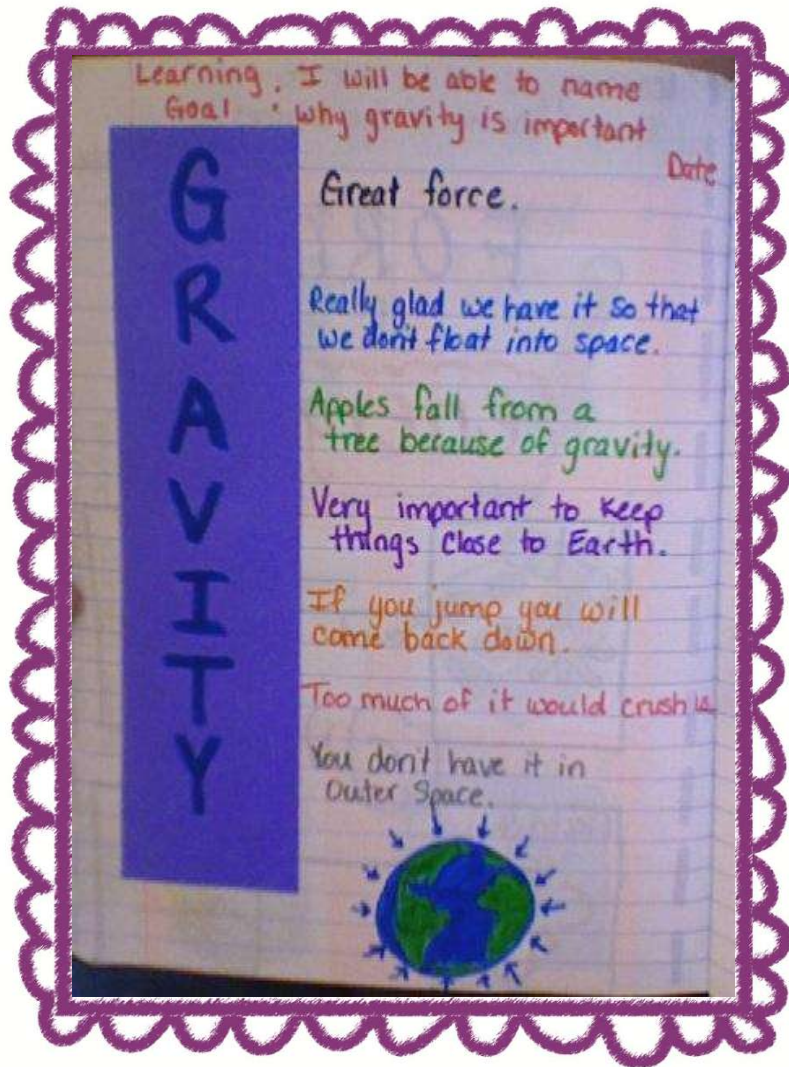 Learning : I will be able to name
Goal why gravity is important
Date
G
Great force.
R
Really glad we have it so that
we don't float into space.
A
Apples fall from a
tree because of gravity.
V
Very important to keep
things close to Earth.
I
If you jump you will
come back down.
T
Too much of it would crush us
Y
You don't have it in
Outer Space.